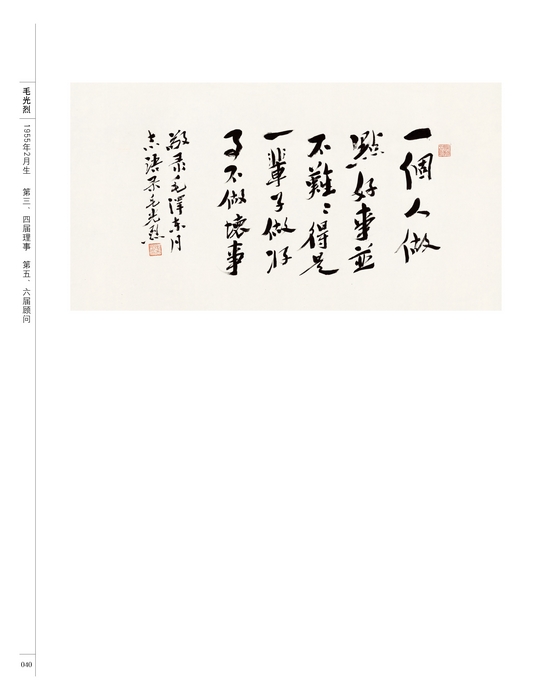 一個人做
點好事並
不難〻得是
一輩子做好
事不做壞事
敬录毛澤东同
志語录毛光烈
毛光烈 1955年2月生 第三、四届理事 第五、六届顾问
040